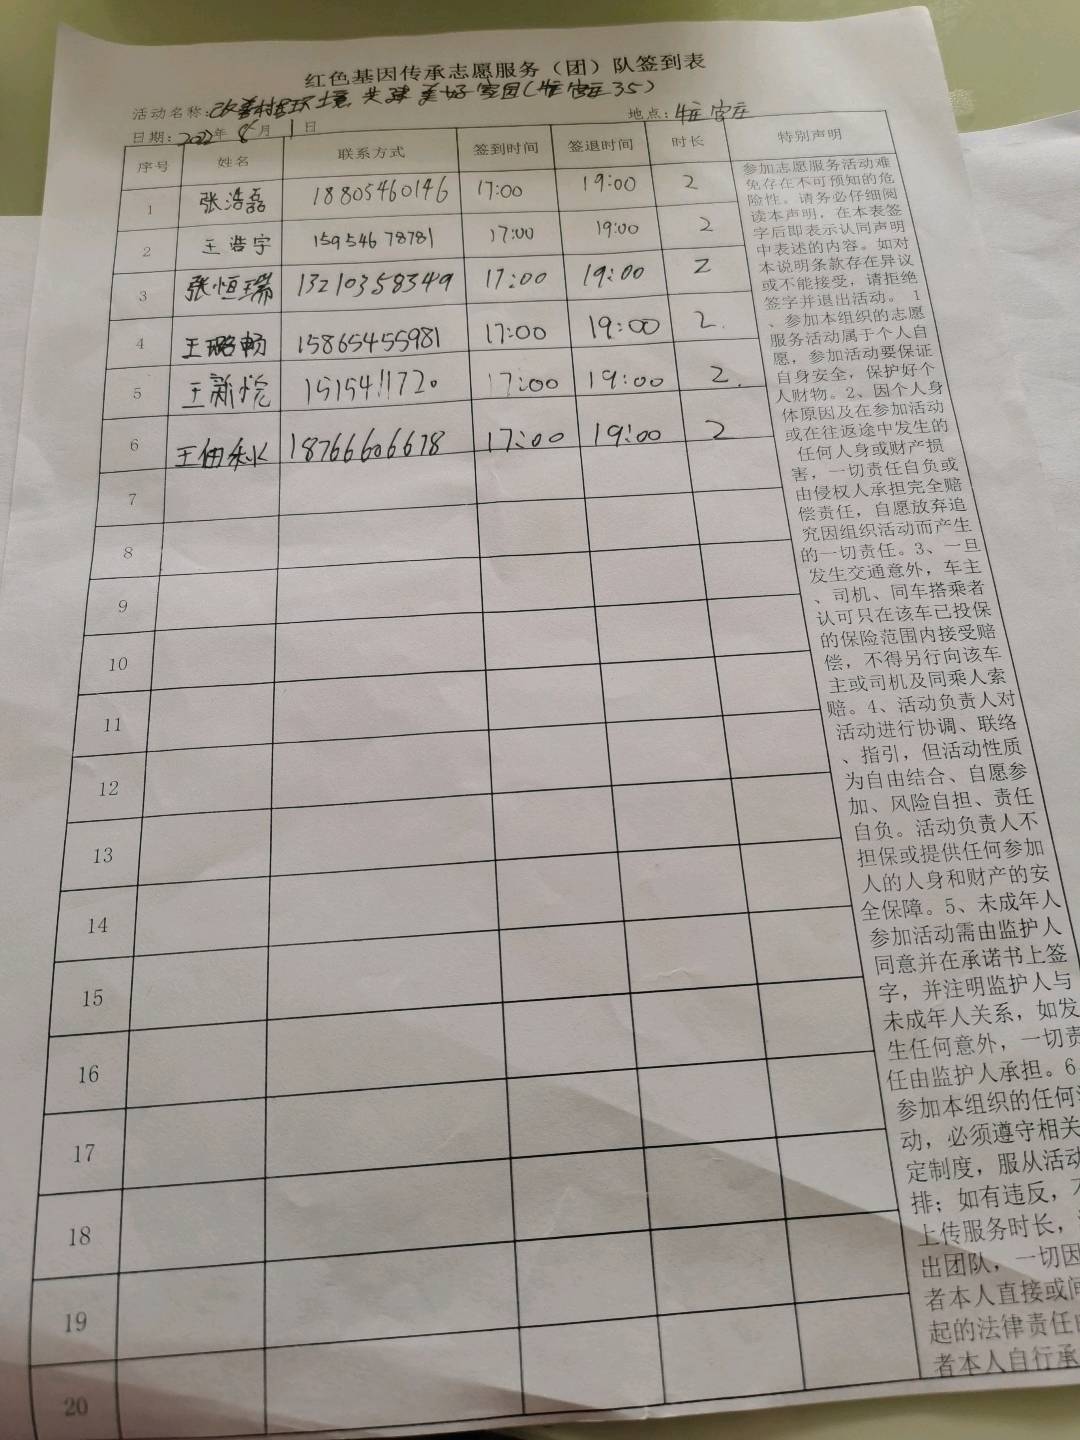 红色基因传承志愿服务（团）队签到表
活动名称：改善村居环境 共建美好家园（牛官庄35）
日期：2022年8月1日 地点：牛官庄
序号 姓名 联系方式 签到时间 签退时间 时长 特别声明
1 张浩磊 18805460146 17:00 19:00 2
2 王浩宇 15954678781 17:00 19:00 2
3 张恒瑞 13210358349 17:00 19:00 2
4 王璐畅 15865455981 17:00 19:00 2.
5 王新悦 17:00 19:00 2.
6 18766606678 17:00 19:00 2
7
8
9
10
11
12
13
14
15
16
17
18
19
20
参加志愿服务活动难
免存在不可预知的危
险性。请务必仔细阅
读本声明，在本表签
字后即表示认同声明
中表述的内容。如对
本说明条款存在异议
或不能接受，请拒绝
签字并退出活动。 1
、参加本组织的志愿
服务活动属于个人自
愿，参加活动要保证
自身安全，保护好个
人财物。2、因个人身
体原因及在参加活动
或在往返途中发生的
任何人身或财产损
害，一切责任自负或
由侵权人承担完全赔
偿责任，自愿放弃追
究因组织活动而产生
的一切责任。3、一旦
发生交通意外，车主
、司机、同车搭乘者
认可只在该车已投保
的保险范围内接受赔
偿，不得另行向该车
主或司机及同乘人索
赔。4、活动负责人对
活动进行协调、联络
、指引，但活动性质
为自由结合、自愿参
加、风险自担、责任
自负。活动负责人不
担保或提供任何参加
人的人身和财产的安
全保障。5、未成年人
参加活动需由监护人
同意并在承诺书上签
字，并注明监护人与
未成年人关系，如发
生任何意外，一切责
任由监护人承担。6
参加本组织的任何
动，必须遵守相关
定制度，服从活动
排；如有违反，
上传服务时长，
出团队，一切因
者本人直接或间
起的法律责任由
者本人自行承